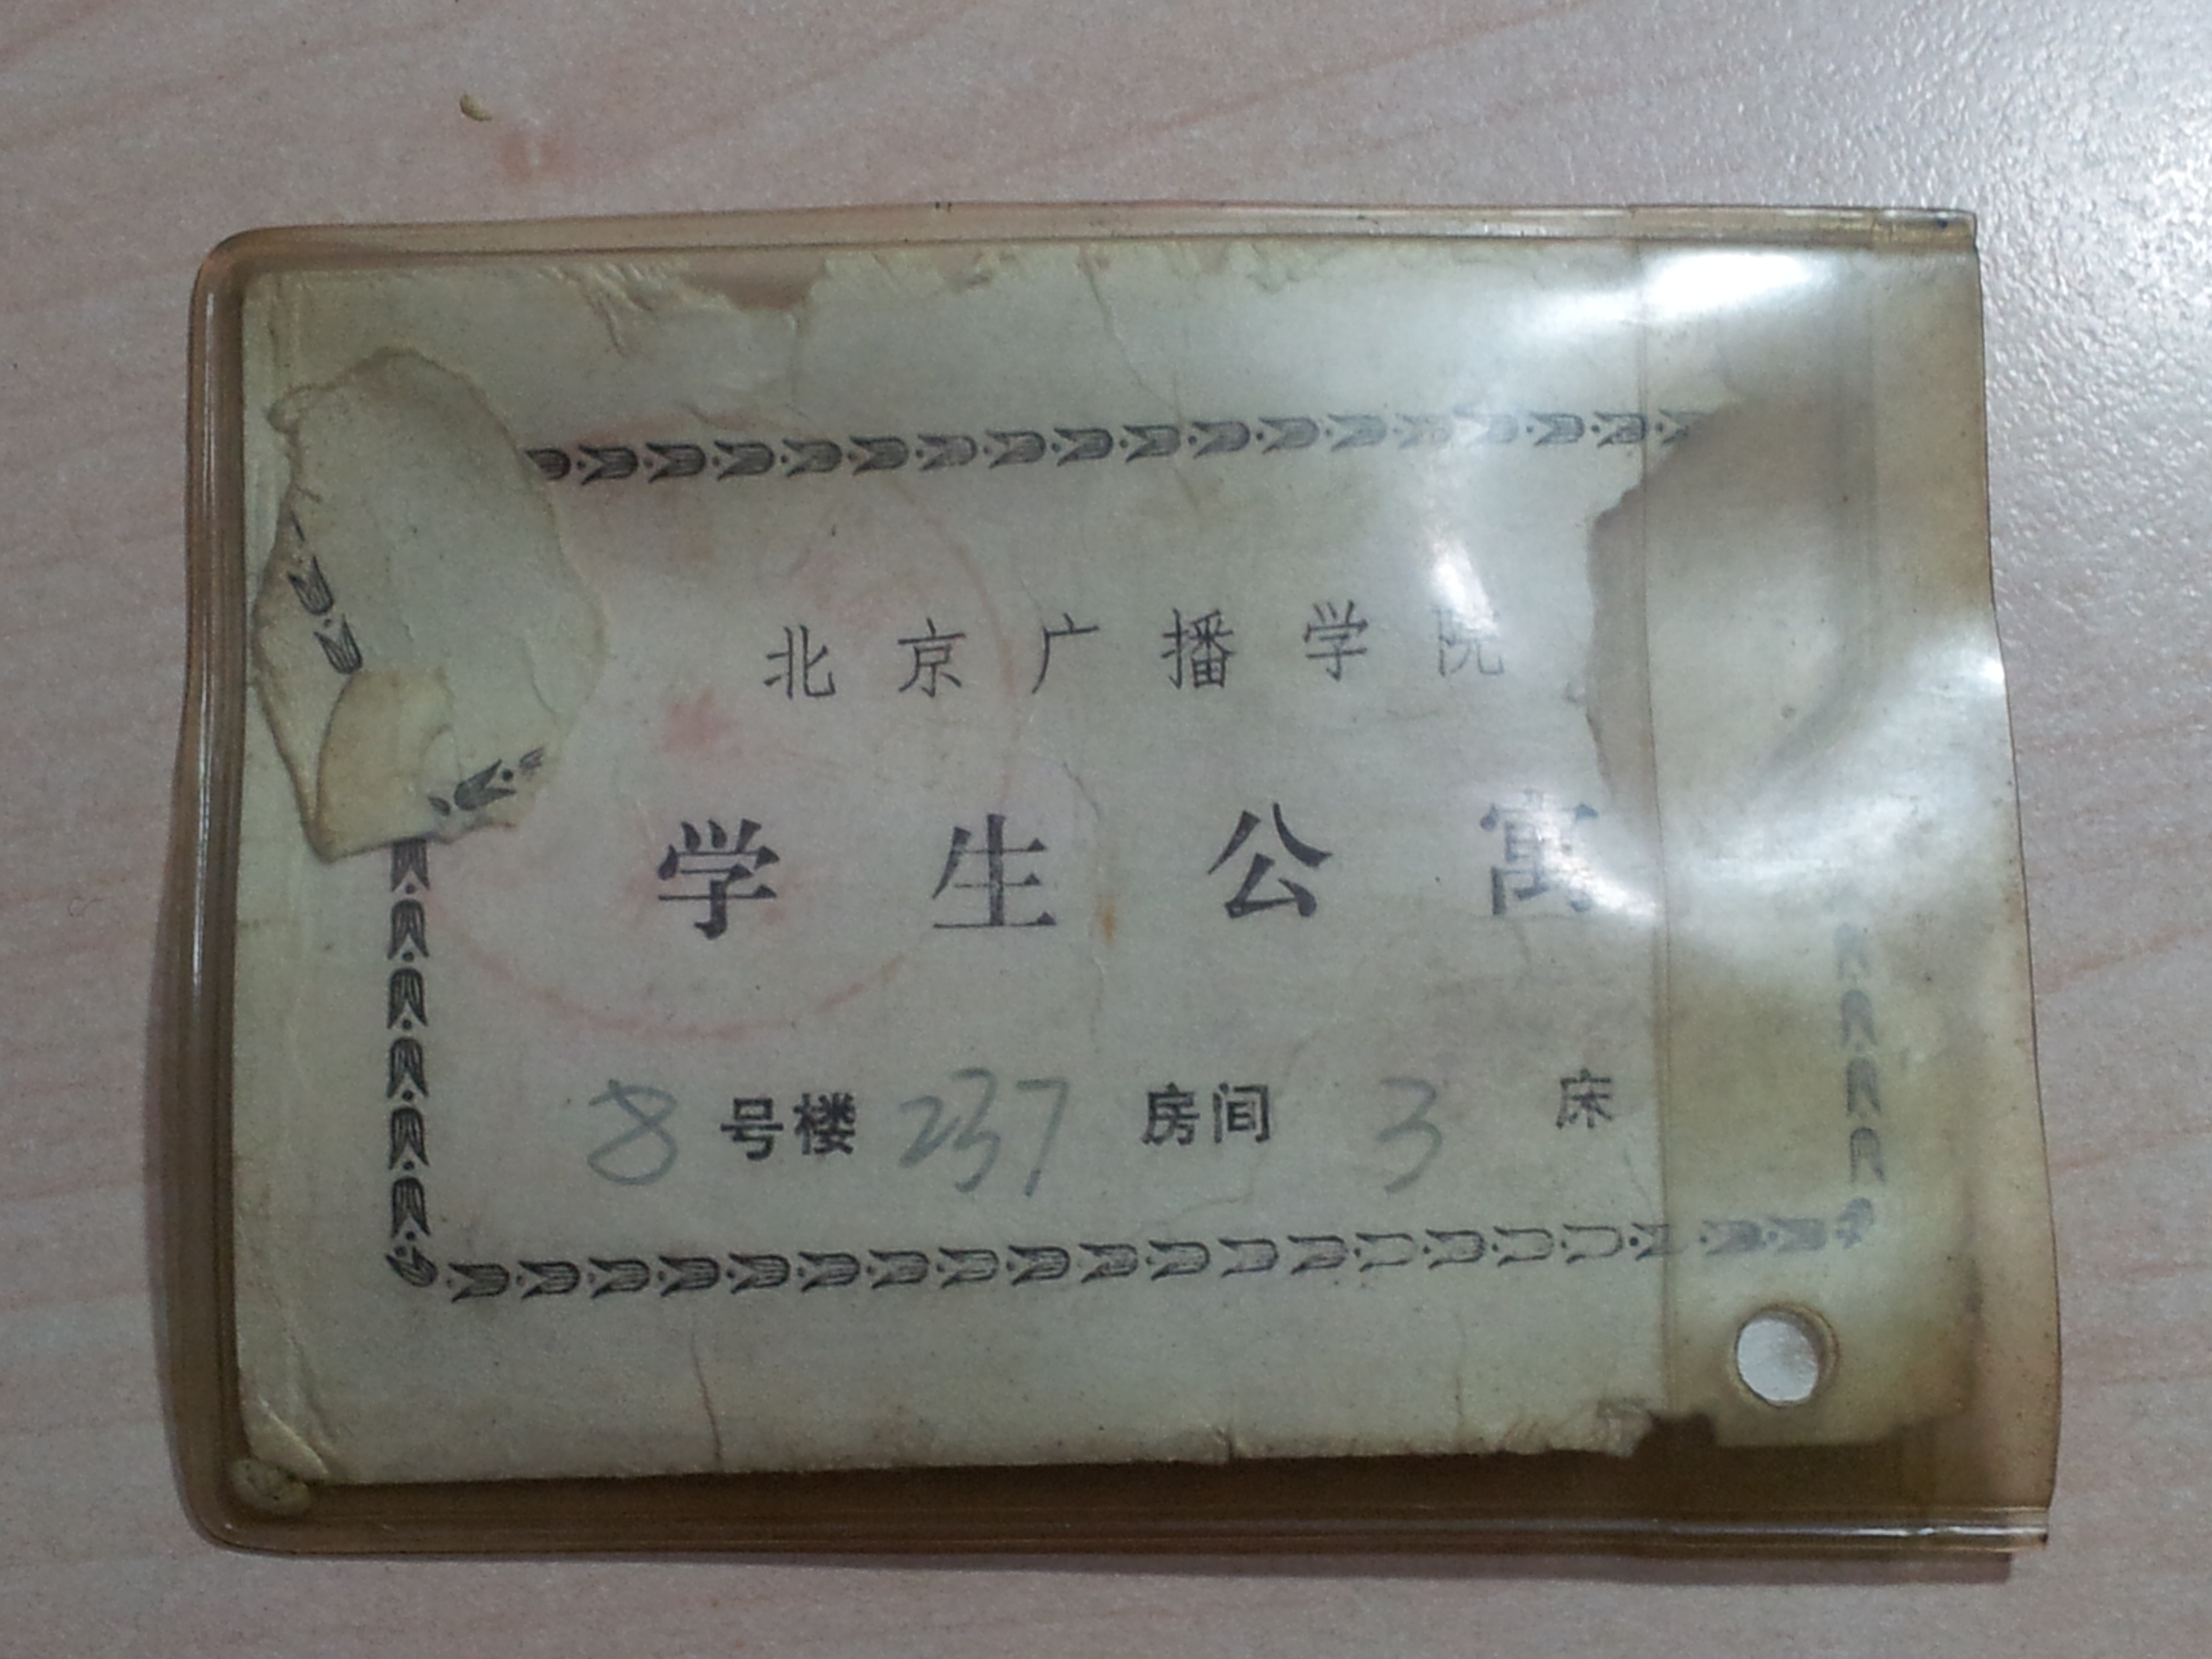 北京广播学院
学生公寓
8号楼237房间3床